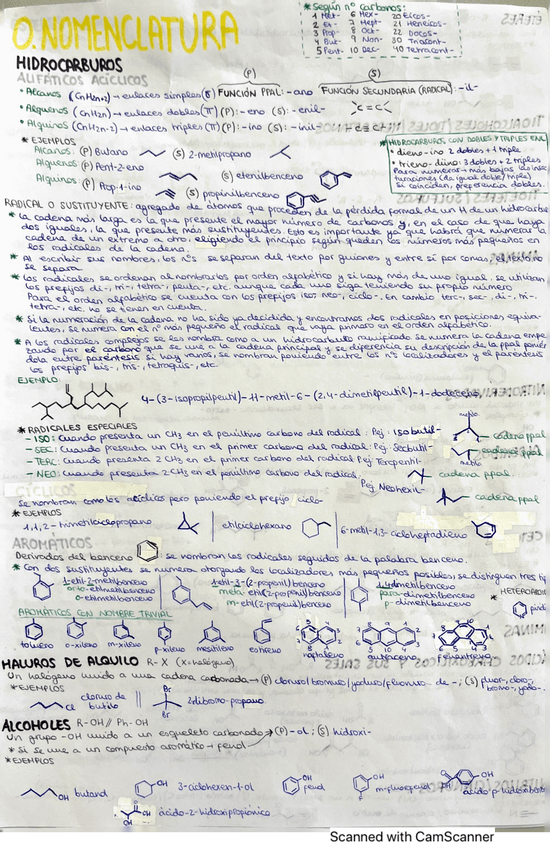 0. NOMENCLATURA
* según nº carbonos:
1 Met- 6 Hex- 20 Eicos-
2 Et- 7 Hept- 21 Heneicos-
3 Prop- 8 Oct- 22 Docos-
4 But- 9 Non- 30 Triacont-
5 Pent- 10 Dec- 40 Tetracont-
HIDROCARBUROS
ALIFÁTICOS ACÍCLICOS
(P) (S)
• Alcanos (CnH2n+2) → enlaces simples FUNCIÓN PPAL: -ano FUNCIÓN SECUNDARIA (RADICAL): -il-
• Alquenos (CnH2n) → enlaces dobles (π) (P): -eno (S): -enil- >C=C<
• Alquinos (CnH2n-2) → enlaces triples (π) (P): -ino (S): -inil- -C≡C-
* EJEMPLOS
Alcanos: (P) Butano (S) 2-metilpropano
Alquenos: (P) Pent-2-eno (S) etenilbenceno
Alquinos: (P) Prop-1-ino (S) propinilbenceno
* HIDROCARBUROS CON DOBLES Y TRIPLES ENL
• dieno-ino 2 dobles + 1 triple
• trieno-diino: 3 dobles + 2 triples
Para numerar → más bajos las
(da igual doble/triple)
Si coinciden, preferencia dobles.
RADICAL O SUSTITUYENTE: agregado de átomos que proceden de la pérdida formal de un H de un hidrocarburo
* la cadena más larga es la que presenta el mayor número de carbonos y, en el caso de que haya
dos iguales, la que presente más sustituyentes. Esto es importante ya que habrá que numerar la
cadena de un extremo a otro, eligiendo el principio según queden los números más pequeños en
los radicales de la cadena.
* Al escribir sus nombres, los nºs se separan del texto por guiones y entre sí por comas,
se separa.
* los radicales se ordenan al nombrarlos por orden alfabético y si hay más de uno igual, se utilizan
los prefijos di-, tri-, tetra-, penta-, etc. aunque cada uno siga teniendo su propio número
Para el orden alfabético se cuenta con los prefijos iso-, neo-, ciclo-. En cambio terc-, sec-, di-, tri-,
tetra-, etc no se tienen en cuenta.
* Si la numeración de la cadena no ha sido ya decidida y encontramos dos radicales en posiciones equiva-
lentes, se numera con el nº más pequeño el radical que vaya primero en el orden alfabético.
* A los radicales complejos se les nombra como a un hidrocarburo ramificado se numera la cadena empe
zando por el carbono que se une a la cadena principal y se diferencia su descripción de la ppal
dola entre paréntesis si hay varios, se nombran poniendo entre los nº localizadores y el paréntesis
los prefijos bis-, tris-, tetraquis-, etc.
EJEMPLO:
* RADICALES ESPECIALES
- ISO: Cuando presenta un CH3 en el penúltimo carbono del radical. Pej: Isobutil- cadena ppal
- SEC: Cuando presenta un CH3 en el primer carbono del radical. Pej: Secbutil- cadena ppal
- TERC: Cuando presenta 2 CH3 en el primer carbono del radical Pej Tercpentil-
- NEO: Cuando presenta 2 CH3 en el penúltimo carbono del radical. cadena ppal
Pej Neohexil- cadena ppal
Se nombran como los acíclicos pero poniendo el prefijo ciclo-
* EJEMPLOS
1,1,2-trimetilciclopropano etilciclohexano 6-metil-1,3-cicloheptadieno
AROMÁTICOS
Derivados del benceno se nombran los radicales seguidos de la palabra benceno.
* Con dos sustituyentes se numera otorgando los localizadores más pequeños posibles; se distinguen tres tip
1-etil-2-metilbenceno 1-etil-3-(2-propenil)benceno 1,4-dimetilbenceno
orto-etilmetilbenceno meta-etil(2-propenil)benceno para-dimetilbenceno
o-etilmetilbenceno m-etil(2-propenil)benceno p-dimetilbenceno
AROMÁTICOS CON NOMBRE TRIVIAL
tolueno o-xileno m-xileno p-xileno mesitileno estireno naftaleno antraceno fenantreno
HALUROS DE ALQUILO R-X (X=halógeno)
Un halógeno unido a una cadena carbonada → (P) cloruro/bromuro/yoduro/fluoruro de -; (S) fluor-, cloro-,
bromo-, yodo-.
* EJEMPLOS
Cl cloruro de butilo Br Br 2,2-dibromo-propano
ALCOHOLES R-OH // Ph-OH
Un grupo -OH unido a un esqueleto carbonado → (P) -ol; (S) hidroxi-
* Si se une a un compuesto aromático → fenol
* EJEMPLOS
OH butanol OH 3-ciclohexen-1-ol OH fenol OH m-fluorofenol OH
OH ácido-2-hidroxipropiónico
Scanned with CamScanner